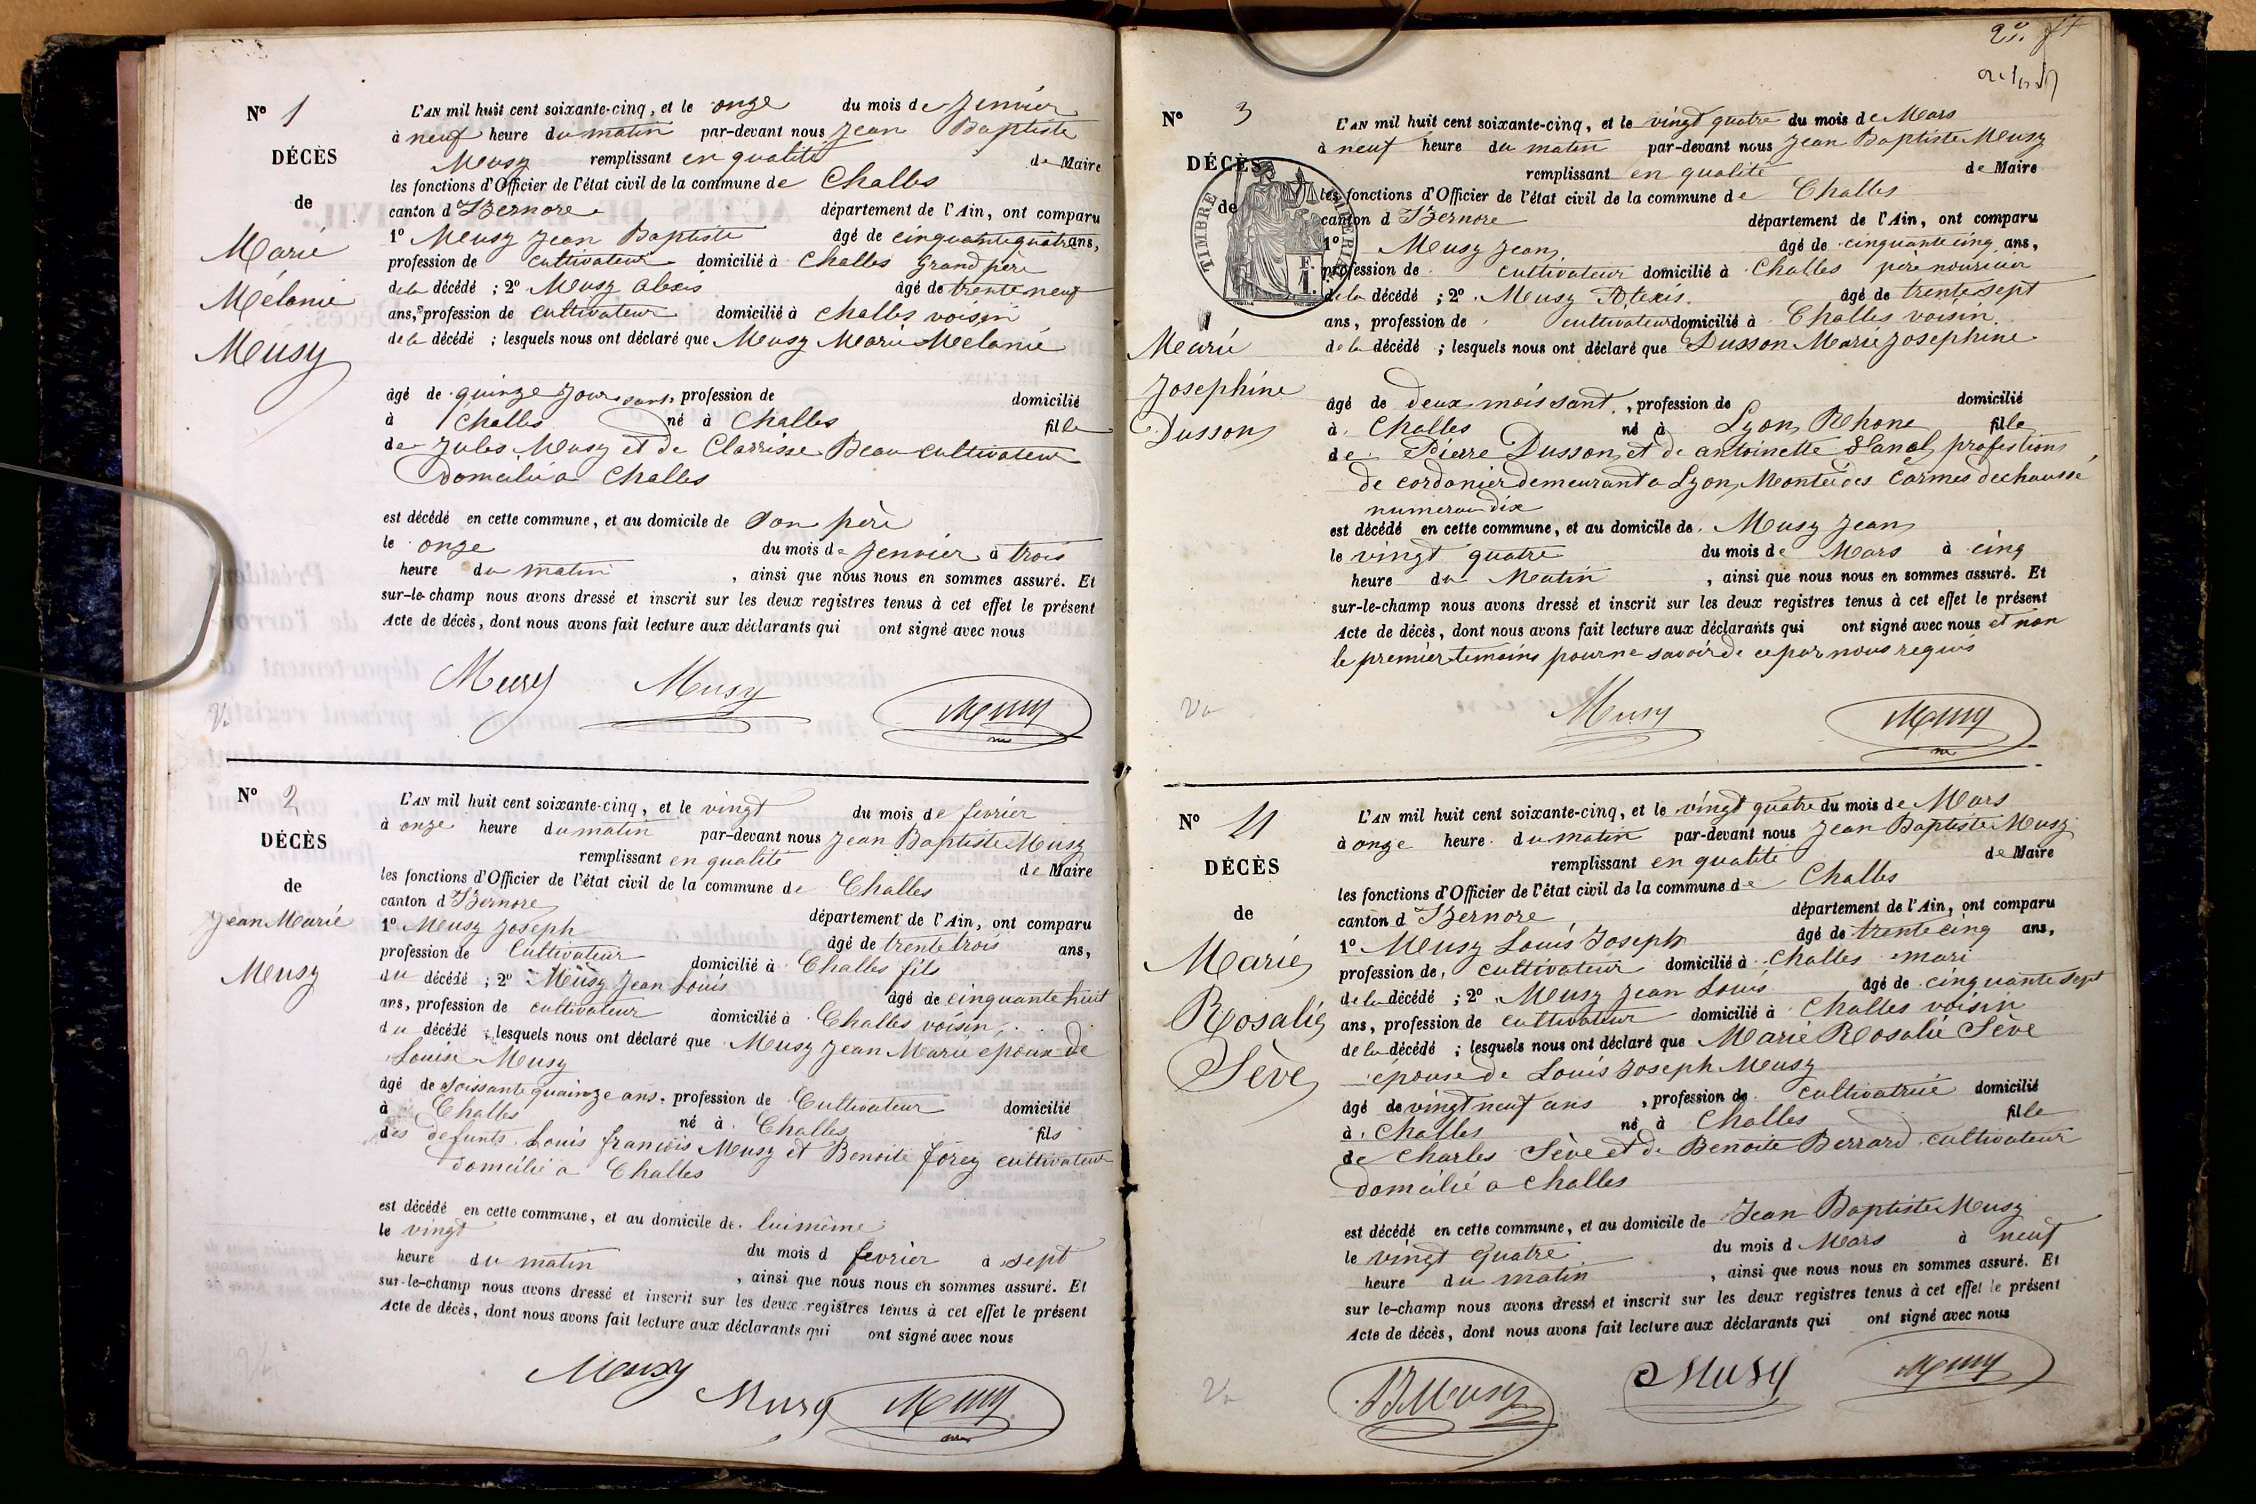 Nº 1
DÉCÈS
de
Marie
Mélanie
Meusy
L'AN mil huit cent soixante-cinq, et le onze du mois de Jenvier
à neuf heure du matin par-devant nous Jean Baptiste
Meusy remplissant en qualité de Maire
les fonctions d'Officier de l'état civil de la commune de Challes
canton d'Izernore département de l'Ain, ont comparu
1º Meusy Jean Baptiste âgé de cinquante quatre ans,
profession de cultivateur domicilié à Challes Grand père
de la décédé ; 2º Meusy Alexis âgé de trente neuf
ans, profession de cultivateur domicilié à Challes voisin
de la décédé ; lesquels nous ont déclaré que Meusy Marie Melanie
âgé de quinze jours sans, profession de domicilié
à Challes né à Challes fille
de Jules Meusy et de Clarisse Beau cultivateur
Domcilié a Challes
est décédé en cette commune, et au domicile de Son père
le onze du mois de Jenvier à trois
heure du matin , ainsi que nous nous en sommes assuré. Et
sur-le-champ nous avons dressé et inscrit sur les deux registres tenus à cet effet le présent
Acte de décès, dont nous avons fait lecture aux déclarants qui ont signé avec nous
Musy Musy Musy
Nº 2
DÉCÈS
de
Jean Marie
Meusy
L'AN mil huit cent soixante-cinq, et le vingt du mois de fevrier
à onze heure du matin par-devant nous Jean Baptiste Meusy
remplissant en qualité de Maire
les fonctions d'Officier de l'état civil de la commune de Challes
canton d'Izernore département de l'Ain, ont comparu
1º Meusy Joseph âgé de trente trois ans,
profession de Cultivateur domicilié à Challes fils
du décédé ; 2º Meusy Jean Louis âgé de cinquante huit
ans, profession de cultivateur domicilié à Challes voisin
du décédé ; lesquels nous ont déclaré que Meusy Jean Marie epoux de
Louise Meusy
âgé de Soissante quainze ans, profession de Cultivateur domicilié
à Challes né à Challes fils
des defunts Louis francois Meusy et Benoite forez cultivateur
domcilié a Challes
est décédé en cette commune, et au domicile de luimeme
le vingt du mois d fevrier à sept
heure du matin , ainsi que nous nous en sommes assuré. Et
sur-le-champ nous avons dressé et inscrit sur les deux registres tenus à cet effet le présent
Acte de décès, dont nous avons fait lecture aux déclarants qui ont signé avec nous
Meusy Musy Musy
Nº 3
DÉCÈS
de
TIMBRE IMPERIAL
1 F.
Marie
Josephine
Dusson
L'AN mil huit cent soixante-cinq, et le vingt quatre du mois de Mars
à neuf heure du matin par-devant nous Jean Baptiste Meusy
remplissant en qualité de Maire
les fonctions d'Officier de l'état civil de la commune de Challes
canton d'Izernore département de l'Ain, ont comparu
1º Meusy Jean âgé de cinquante cinq ans,
profession de cultivateur domicilié à Challes père nouricier
de la décédé ; 2º Meusy Alexis âgé de trente sept
ans, profession de cultivateur domicilié à Challes voisin
de la décédé ; lesquels nous ont déclaré que Dusson Marie Josephine
âgé de deux mois sant, profession de domicilié
à Challes né à Lyon Rhone fille
de Pierre Dusson et de antoinette profestion
de cordonier demeurant a Lyon, Montée des Carmes dechaussé
numerau dix
est décédé en cette commune, et au domicile de Meusy Jean
le vingt quatre du mois de Mars à cinq
heure du Matin , ainsi que nous nous en sommes assuré. Et
sur-le-champ nous avons dressé et inscrit sur les deux registres tenus à cet effet le présent
Acte de décès, dont nous avons fait lecture aux déclarants qui ont signé avec nous et non
le premier temoins pour ne savoir de ce par nous requis
Musy Musy
Nº 4
DÉCÈS
de
Marie
Rosalie
Sève
L'AN mil huit cent soixante-cinq, et le vingt quatre du mois de Mars
à onze heure du matin par-devant nous Jean Baptiste Meusy
remplissant en qualité de Maire
les fonctions d'Officier de l'état civil de la commune de Challes
canton d'Izernore département de l'Ain, ont comparu
1º Meusy Louis Joseph âgé de trente cinq ans,
profession de cultivateur domicilié à Challes mari
de la décédé ; 2º Meusy Jean Louis âgé de cinquante sept
ans, profession de cultivateur domicilié à Challes voisin
de la décédé ; lesquels nous ont déclaré que Marie Rosalie Sève
épouse de Louis Joseph Meusy
âgé de vingt neuf ans , profession de cultivatrice domicilié
à Challes né à Challes fille
de Charles Sève et de Benoite Berrard cultivateur
domcilié a Challes
est décédé en cette commune, et au domicile de Jean Baptiste Meusy
le vingt quatre du mois d Mars à neuf
heure du matin , ainsi que nous nous en sommes assuré. Et
sur le-champ nous avons dressé et inscrit sur les deux registres tenus à cet effet le présent
Acte de décès, dont nous avons fait lecture aux déclarants qui ont signé avec nous
Meusy Musy Musy